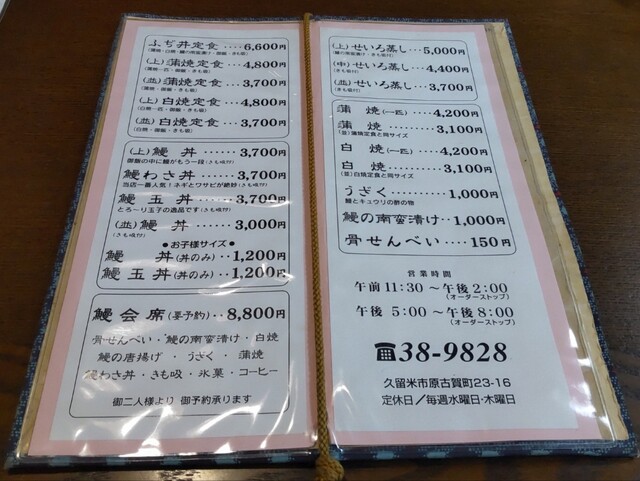 ふぢ丼定食・・・・6,600円
(上)蒲焼定食・・・4,800円
(並)蒲焼定食・・・3,700円
(上)白焼定食・・・4,800円
(並)白焼定食・・・3,700円
(上)鰻丼・・・・・3,700円
御飯の中に鰻がもう一段(きも吸付)
鰻わさ丼・・・・3,700円
当店一番人気！ネギとワサビが絶妙(きも吸付)
鰻玉丼・・・・・3,700円
とろ〜り玉子の逸品です(きも吸付)
(並)鰻丼・・・・・3,000円
(きも吸付)
●お子様サイズ●
鰻丼(丼のみ)・・1,200円
鰻玉丼(丼のみ)・・1,200円
鰻会席(要予約)・・8,800円
骨せんべい・鰻の南蛮漬け・白焼
鰻の唐揚げ・うざく・蒲焼
鰻わさ丼・きも吸・氷菓・コーヒー
御二人様より 御予約承ります
(上)せいろ蒸し・・5,000円
(中)せいろ蒸し・・4,400円
(きも吸付)
(並)せいろ蒸し・・3,700円
(きも吸付)
蒲焼(一匹)・・・・4,200円
蒲焼・・・・・・3,100円
(並)蒲焼定食と同サイズ
白焼(一匹)・・・・4,200円
白焼・・・・・・3,100円
(並)白焼定食と同サイズ
うざく・・・・・1,000円
鰻とキュウリの酢の物
鰻の南蛮漬け・・1,000円
骨せんべい・・・・150円
営業時間
午前11:30〜午後2:00
(オーダーストップ)
午後 5:00〜午後8:00
(オーダーストップ)
☎38-9828
久留米市原古賀町23-16
定休日／毎週水曜日・木曜日